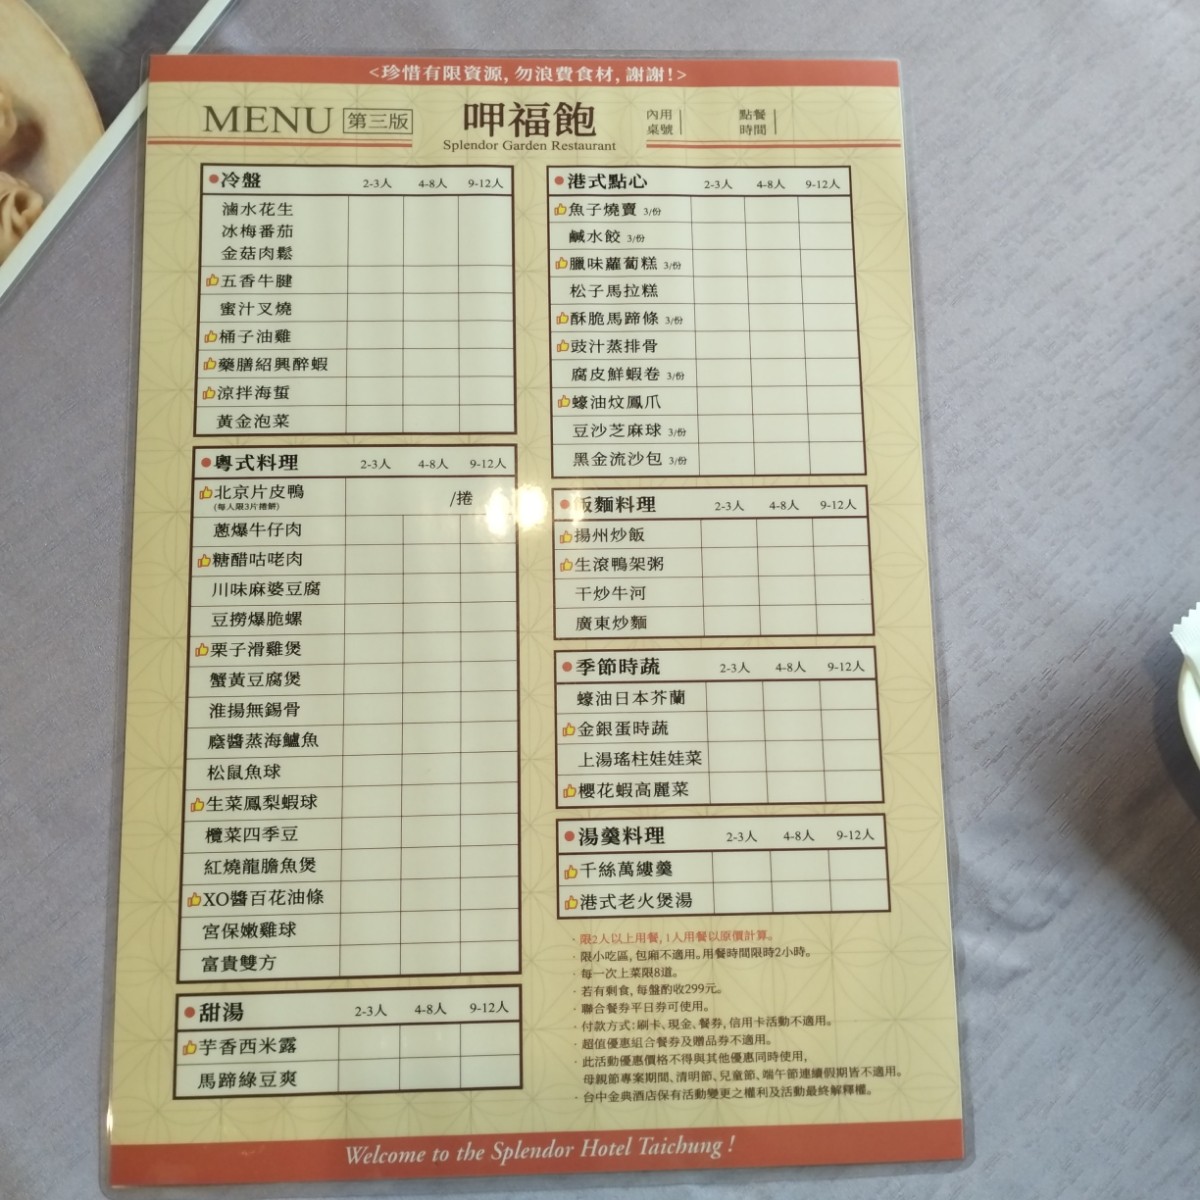 <珍惜有限資源, 勿浪費食材, 謝謝!>
MENU 第三版
呷福飽
Splendor Garden Restaurant
內用桌號
點餐時間
冷盤 2-3人 4-8人 9-12人
滷水花生
冰梅番茄
金菇肉鬆
五香牛腱
蜜汁叉燒
桶子油雞
藥膳紹興醉蝦
涼拌海蜇
黃金泡菜
粵式料理 2-3人 4-8人 9-12人
北京片皮鴨 /捲
(每人限3片捲餅)
蔥爆牛仔肉
糖醋咕咾肉
川味麻婆豆腐
豆撈爆脆螺
栗子滑雞煲
蟹黃豆腐煲
淮揚無錫骨
蔭醬蒸海鱸魚
松鼠魚球
生菜鳳梨蝦球
欖菜四季豆
紅燒龍膽魚煲
XO醬百花油條
宮保嫩雞球
富貴雙方
甜湯 2-3人 4-8人 9-12人
芋香西米露
馬蹄綠豆爽
港式點心 2-3人 4-8人 9-12人
魚子燒賣 3/份
鹹水餃 3/份
臘味蘿蔔糕 3/份
松子馬拉糕
酥脆馬蹄條 3/份
豉汁蒸排骨
腐皮鮮蝦卷 3/份
蠔油炆鳳爪
豆沙芝麻球 3/份
黑金流沙包 3/份
飯麵料理 2-3人 4-8人 9-12人
揚州炒飯
生滾鴨架粥
干炒牛河
廣東炒麵
季節時蔬 2-3人 4-8人 9-12人
蠔油日本芥蘭
金銀蛋時蔬
上湯瑤柱娃娃菜
櫻花蝦高麗菜
湯羹料理 2-3人 4-8人 9-12人
千絲萬縷羹
港式老火煲湯
· 限2人以上用餐, 1人用餐以原價計算。
· 限小吃區, 包廂不適用。用餐時間限時2小時。
· 每一次上菜限8道。
· 若有剩食, 每盤酌收299元。
· 聯合餐券平日券可使用。
· 付款方式:刷卡、現金、餐券, 信用卡活動不適用。
· 超值優惠組合餐券及贈品券不適用。
· 此活動優惠價格不得與其他優惠同時使用,
母親節專案期間、清明節、兒童節、端午節連續假期皆不適用。
· 台中金典酒店保有活動變更之權利及活動最終解釋權。
Welcome to the Splendor Hotel Taichung !